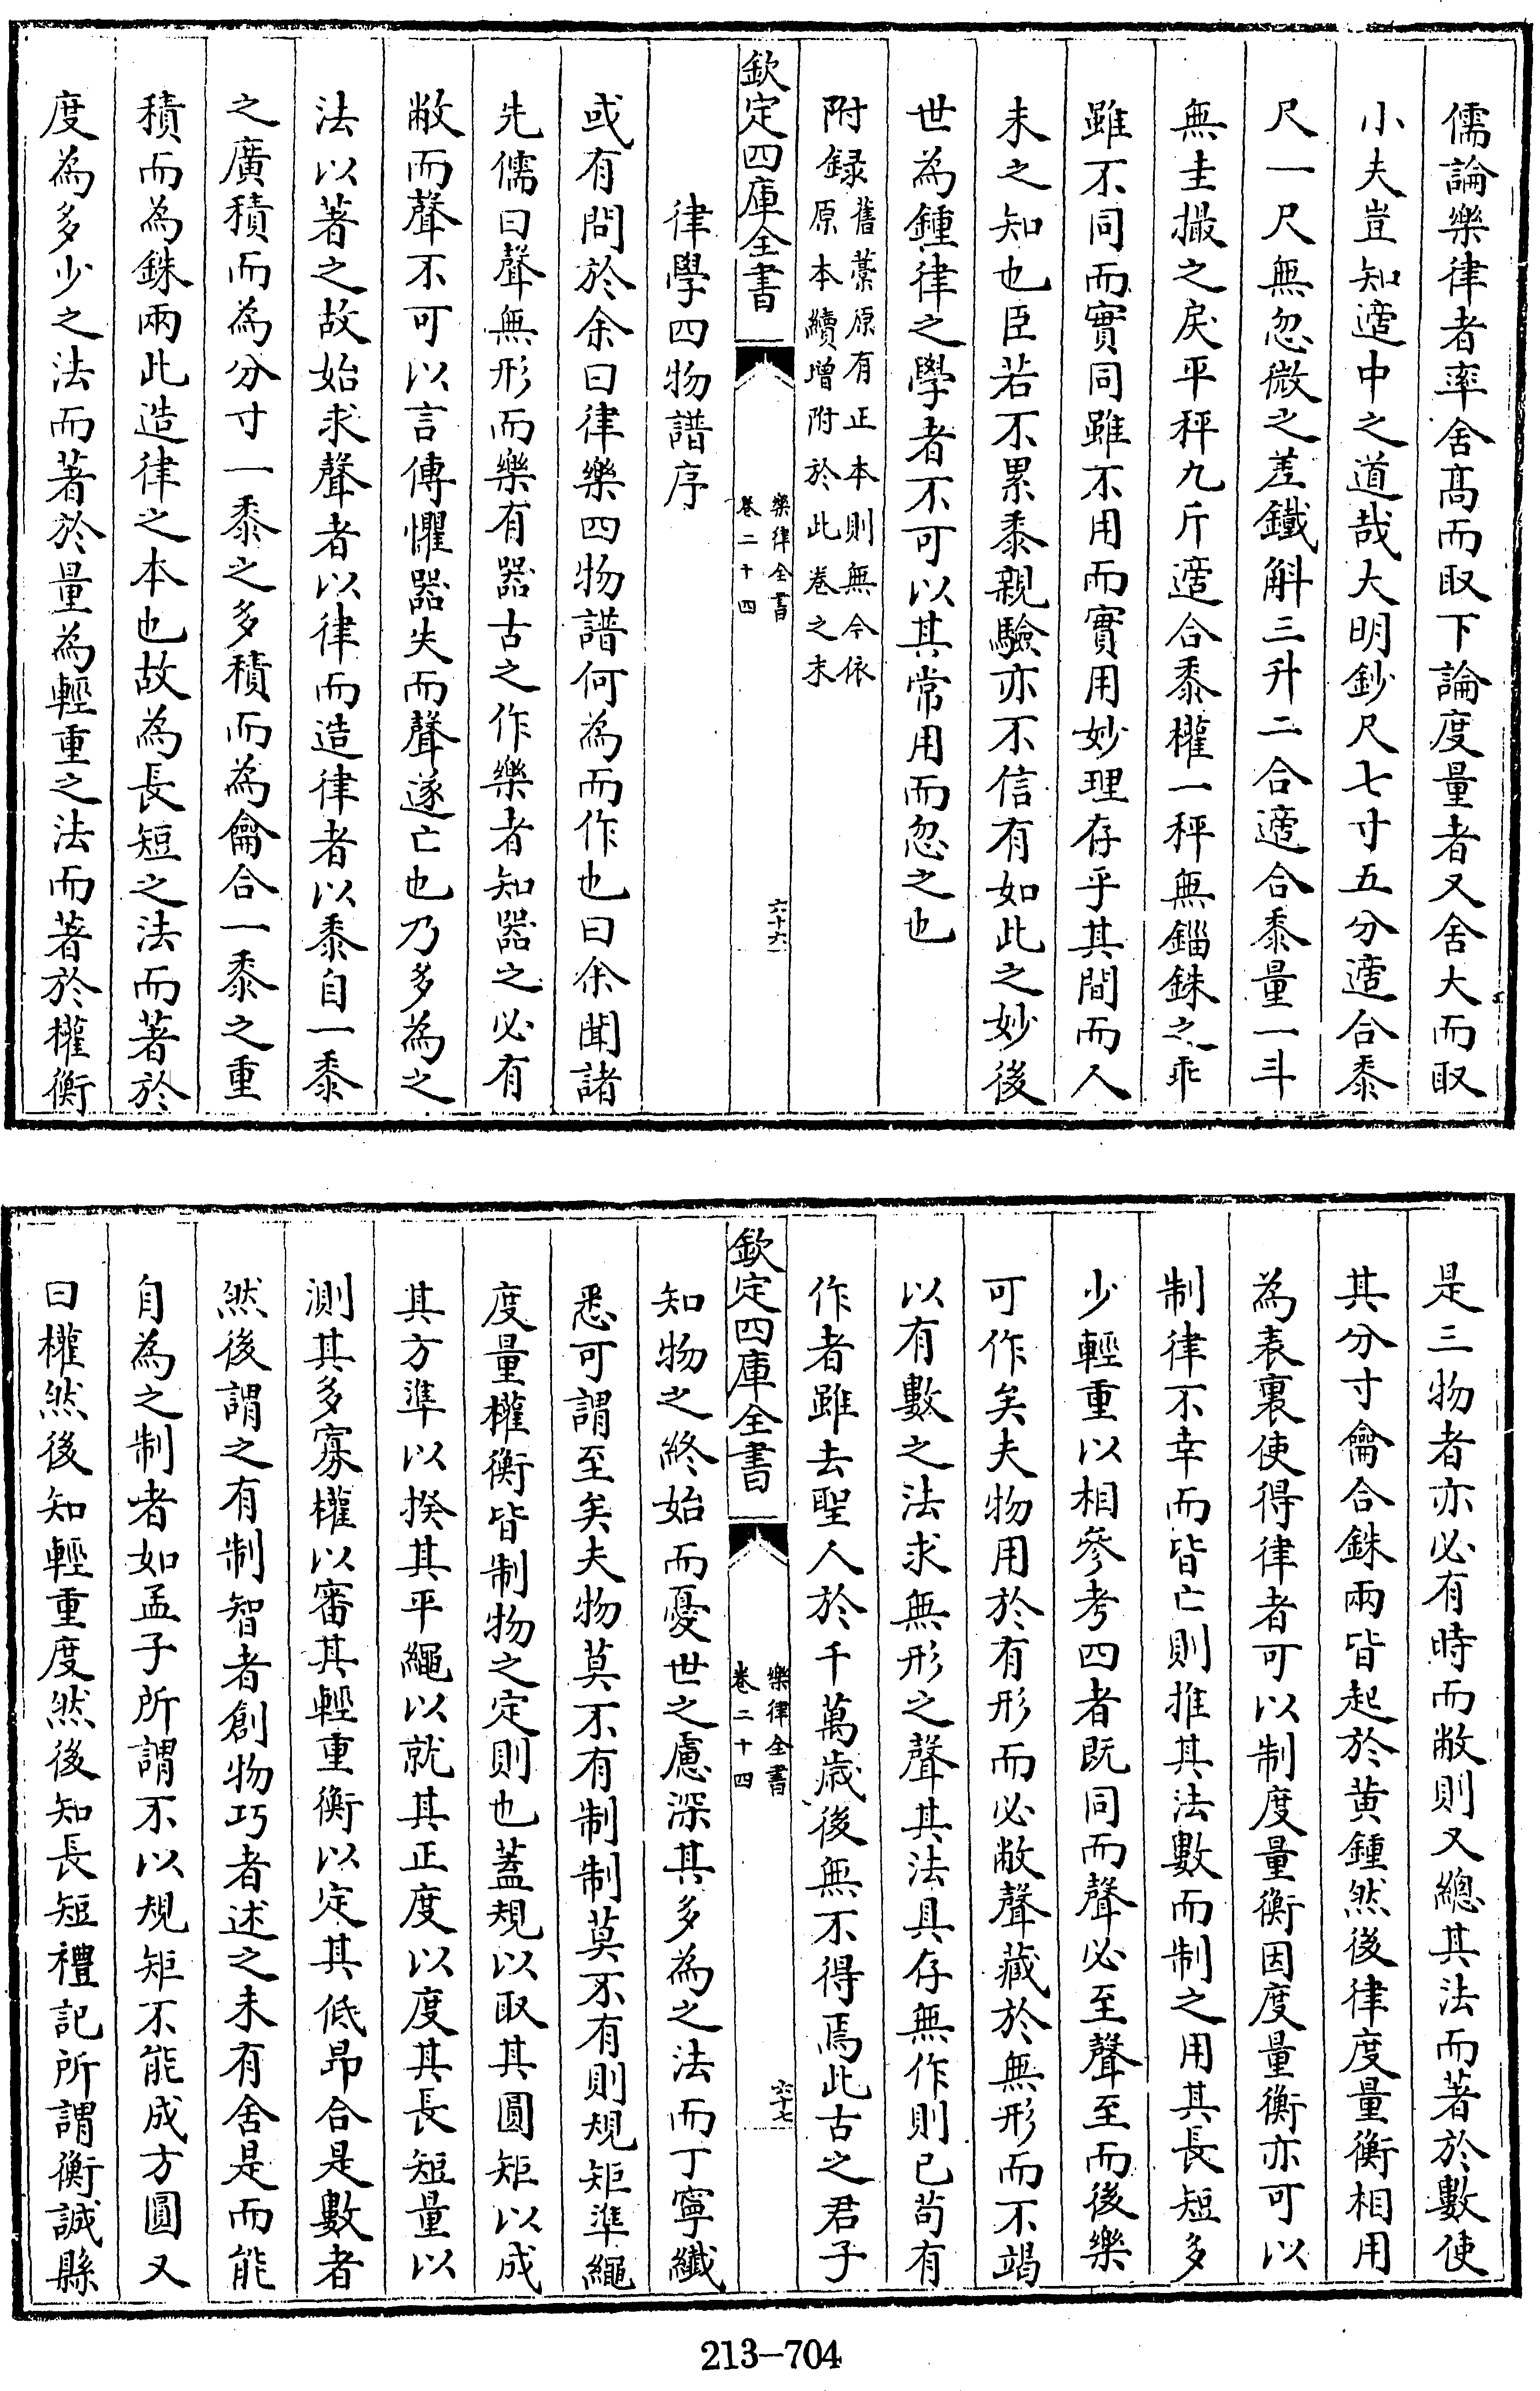 儒論樂律者率舍髙而取下論度量者又舍大而取
小夫豈知適中之道哉大明鈔尺七寸五分適合黍
尺一尺無忽微之差鐵斛三升二合適合黍量一斗
無圭撮之戾平秤九斤適合黍權一秤無錙銖之乖
雖不同而實同雖不用而實用妙理存乎其間而人
未之知也臣若不累黍親驗亦不信有如此之妙後
世為鍾律之學者不可以其常用而忽之也
附録舊藁原有正本則無今依
原本續增附於此卷之末
欽定四庫全書
樂律全書
卷二十四
六十六
律學四物譜序
或有問於余曰律樂四物譜何為而作也曰余聞諸
先儒曰聲無形而樂有器古之作樂者知器之必有
敝而聲不可以言傳懼器失而聲遂亡也乃多為之
法以著之故始求聲者以律而造律者以黍自一黍
之廣積而為分寸一黍之多積而為龠合一黍之重
積而為銖兩此造律之本也故為長短之法而著於
度為多少之法而著於量為輕重之法而著於權衡
是三物者亦必有時而敝則又總其法而著於數使
其分寸龠合銖兩皆起於黄鍾然後律度量衡相用
為表裏使得律者可以制度量衡因度量衡亦可以
制律不幸而皆亡則推其法數而制之用其長短多
少輕重以相參考四者既同而聲必至聲至而後樂
可作矣夫物用於有形而必敝聲藏於無形而不竭
以有數之法求無形之聲其法具存無作則已苟有
作者雖去聖人於千萬歲後無不得焉此古之君子
欽定四庫全書
樂律全書
卷二十四
六十七
知物之終始而憂世之慮深其多為之法而丁寧纖
悉可謂至矣夫物莫不有制制莫不有則規矩準繩
度量權衡皆制物之定則也蓋規以取其圓矩以成
其方準以揆其平繩以就其正度以度其長短量以
測其多寡權以審其輕重衡以定其低昂合是數者
然後謂之有制智者創物巧者述之未有舍是而能
自為之制者如孟子所謂不以規矩不能成方圓又
曰權然後知輕重度然後知長短禮記所謂衡誠縣
213-704